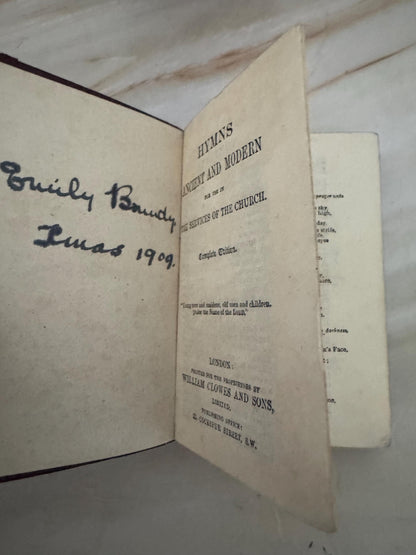 Emily Bandy
Xmas 1909.
HYMNS
ANCIENT AND MODERN
FOR USE IN
THE SERVICES OF THE CHURCH.
Complete Edition.
"Young men and maidens, old men and children,
Praise the Name of the LORD."
LONDON:
PRINTED FOR THE PROPRIETORS BY
WILLIAM CLOWES AND SONS,
LIMITED,
PUBLISHING OFFICE:
23, COCKSPUR STREET, S.W.
sky,
high,
day,
darkness,
's Face,